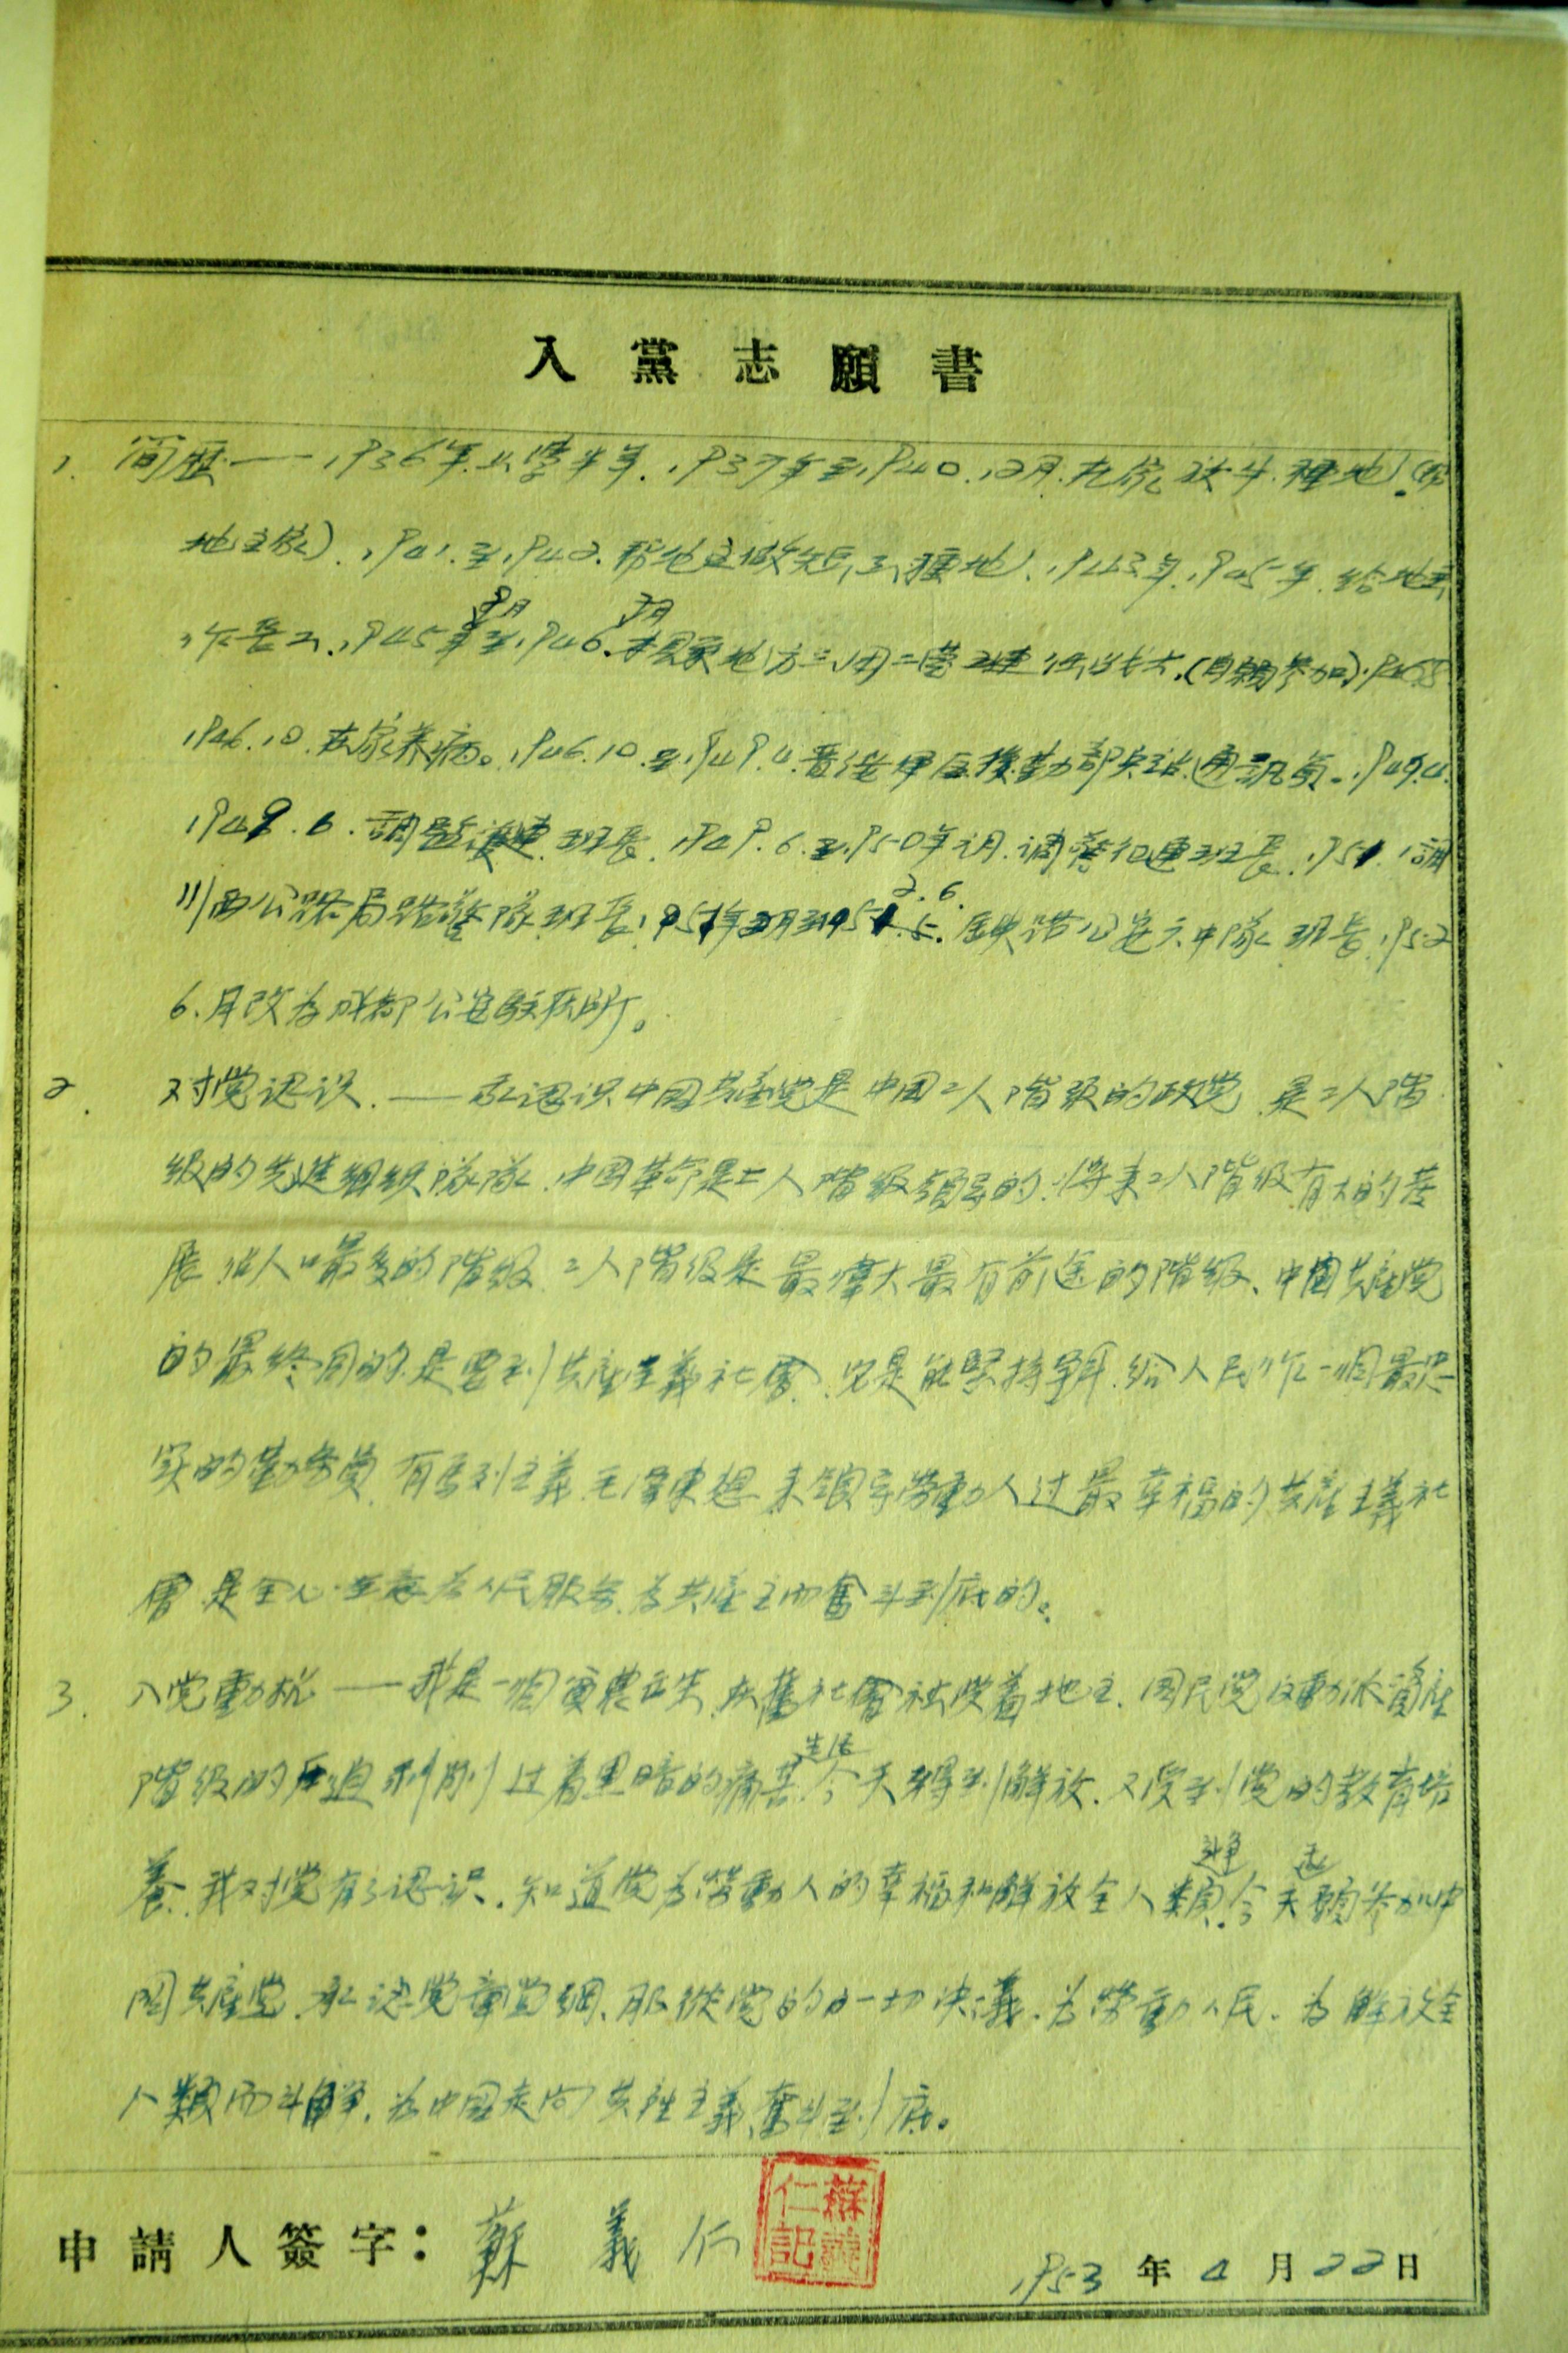 入黨志願書
1. 简歷——1936年上学半年.1937年至1940.12月.在家放牛.種地.(帮
地主家).1941.至1942.帮地主做短工種地.1943年.1945年.给地主
作長工.1945年8月至1946.7月 地方三团二营 連任战士.(自願参加).1946.8
1946.10.在家养病。1946.10.至1949.4.晋绥軍区後勤部兵站通訊員.1949.4.
1949.6.調 連班長.1949.6.至1950年 月.调警衛連班長.1951.1調
川西公路局路警隊班長.1951年 月至1952.6. 公安六中隊班長.1952
6.月改为成都公安 所。
2. 对党認识.——我認识中国共產党是中国工人階級的政党.是工人階
級的先進組织隊隊.中国革命是工人階級領导的.将来工人階級有大的发
展.佔人口最多的階級.工人階級是最偉大最有前途的階級、中国共產党
的最終目的.是要到共產主義社會.它是能坚持 給人民作一個最忠
实的勤务員.有馬列主義毛澤東想.来領导勞動人过最幸福的共產主義社
會.是全心全意为人民服务.为共產主而奮斗到底的。
3. 入党動机——我是一個貧農出生.在舊社會 受着地主.国民党反動派資產
階級的压迫剥削.过着黑暗的痛苦生活.今天得到解放.又受到党的教育培
養.我对党有了認识.知道党为勞動人的幸福和解放全人類.今天 願参加中
国共產党.承認党章党綱.服從党的一切决議.为勞動人民.为解放全
人類而斗争.为中国走向共產主義奮斗到底。
申請人簽字：蘇義仁
蘇義仁記
1953年4月22日